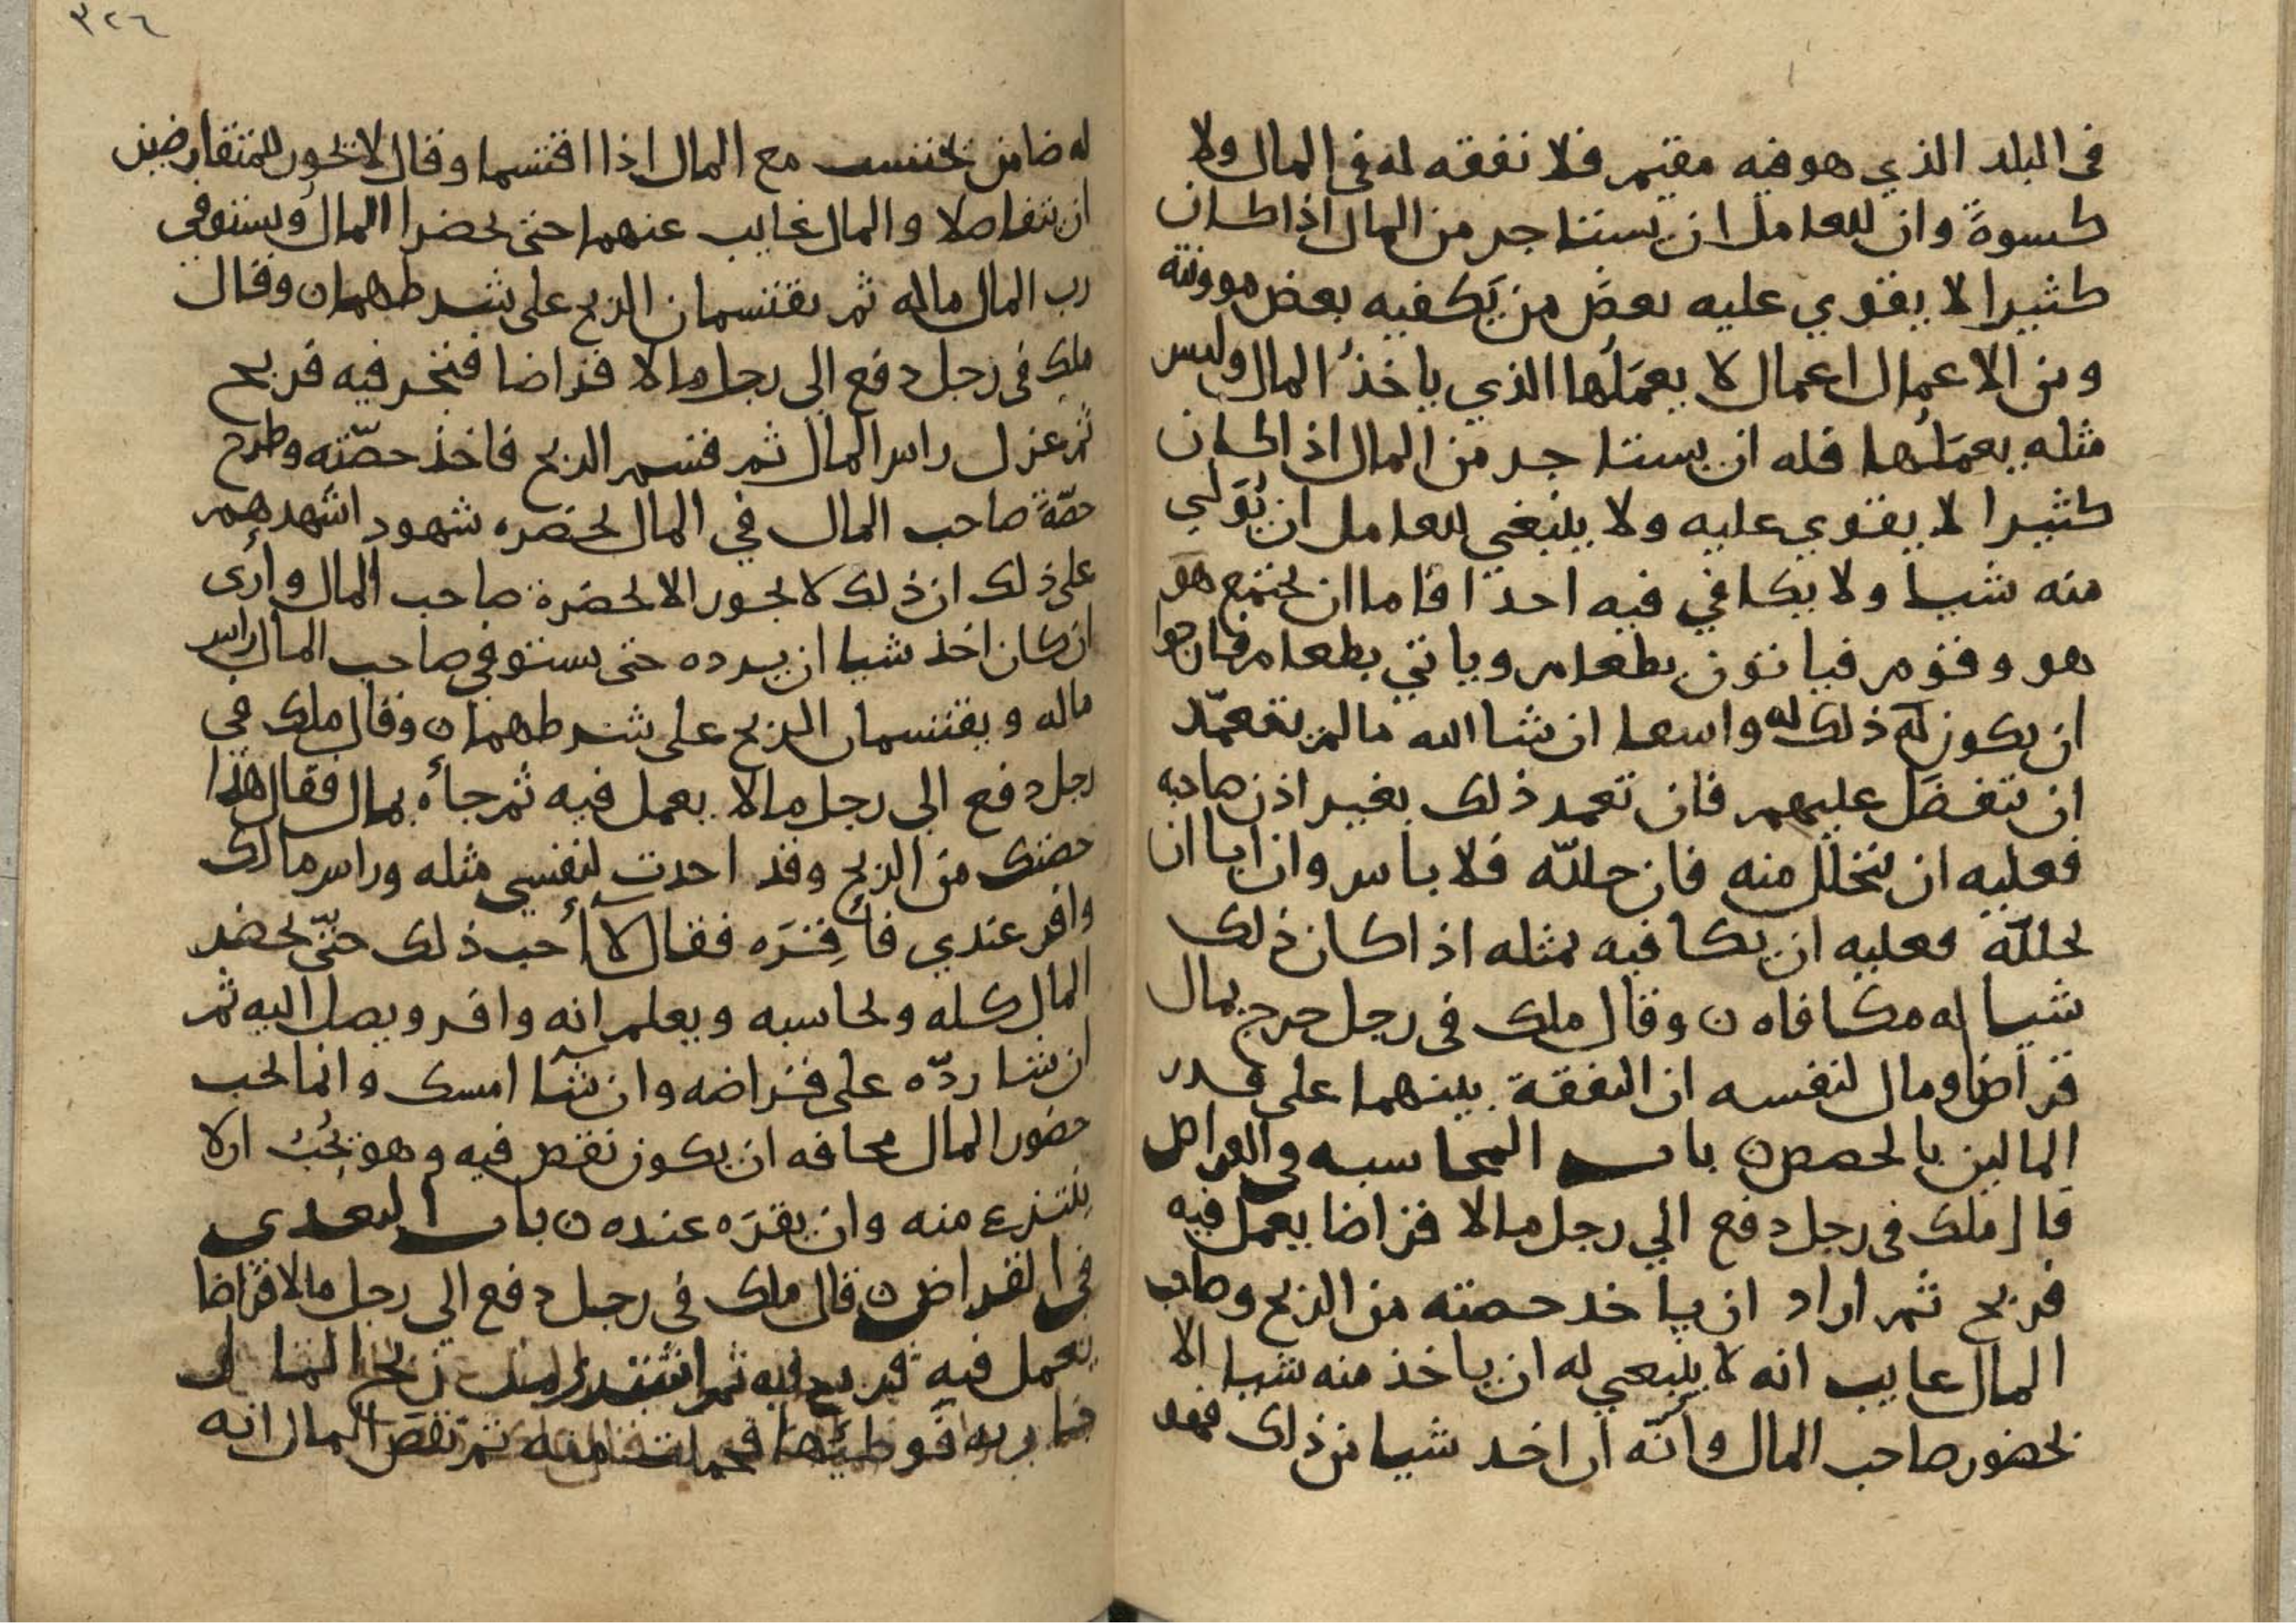 في البلد الذي هو فيه مقيم فلا نفقه له في المال ولا
كسوة وان للعامل ان يستاجر من المال اذا كان
كثيرا لا يقوي عليه بعض من يكفيه بعض موونته
ومن الاعمال اعمال لا يعملها الذي ياخذ المال وليس
مثله يعملها فله ان يستاجر من المال اذا كان
كثيرا لا يقوي عليه ولا ينبغي للعامل ان يولي
منه شيا ولا يكافي فيه احدا فاما ان يجتمع هو
هو وقوم فياتون بطعام وياتي بطعام فارجوا
ان يكون ذلك له واسعا ان شا الله ما لم يتعمد
ان يتفضل عليهم فان تعمد ذلك بغير اذن صاحبه
فعليه ان يتحلل منه فان حلله فلا باس وان ابا ان
يحلله فعليه ان يكافيه بمثله اذا كان ذلك
شيا له مكافاه ن وقال ملك في رجل خرج بمال
قراض ومال لنفسه ان النفقة بينهما على قدر
المالين بالحصص ن باب المحاسبه في القراض
قال ملك في رجل دفع الي رجل مالا قراضا يعمل فيه
فربح ثم اراد ان ياخد حصته من الربح وصاحب
المال غايب انه لا ينبغي له ان ياخذ منه شيا الا
بحضور صاحب المال وانه ان اخد شيا من ذلك فهو
٣٢٦
له ضامن يحتسب مع المال اذا اقتسما وقال لا يجوز للمتقارضين
ان يتفاصلا والمال غايب عنهما حتى يحضرا المال ويستوفي
رب المال ماله ثم يقتسمان الربح على شرطهما ن وقال
ملك في رجل دفع الى رجل مالا قراضا فتجر فيه فربح
ثم عزل راس المال ثم قسم الربح فاخذ حصته وطرح
حصة صاحب المال في المال بحضره شهود اشهدهم
على ذلك ان ذلك لا يجوز الا بحضرة صاحب المال وارى
ان كان اخذ شيا ان يرده حتى يستوفي صاحب المال راس
ماله ويقتسمان الربح على شرطهما ن وقال ملك في
رجل دفع الي رجل مالا يعمل فيه ثم جاه بمال فقال هذا
حصتك من الربح وقد اخدت لنفسي مثله وراس مالك
وافر عندي فاقره فقال لا احب ذلك حتى يحضر
المال كله ويحاسبه ويعلم انه وافر ويصل اليه ثم
ان شا رده على قراضه وان شا امسك وانما يحب
حضور المال مخافه ان يكون نقص فيه وهو يحب ان لا
ينتزع منه وان يقره عنده ن باب التعدي
في القراض ن قال ملك في رجل دفع الى رجل مالا قراضا
يعمل فيه فربح فيه ثم اشترى من ربح المال
جاريه فوطئها فحملت منه ثم نقص المال انه